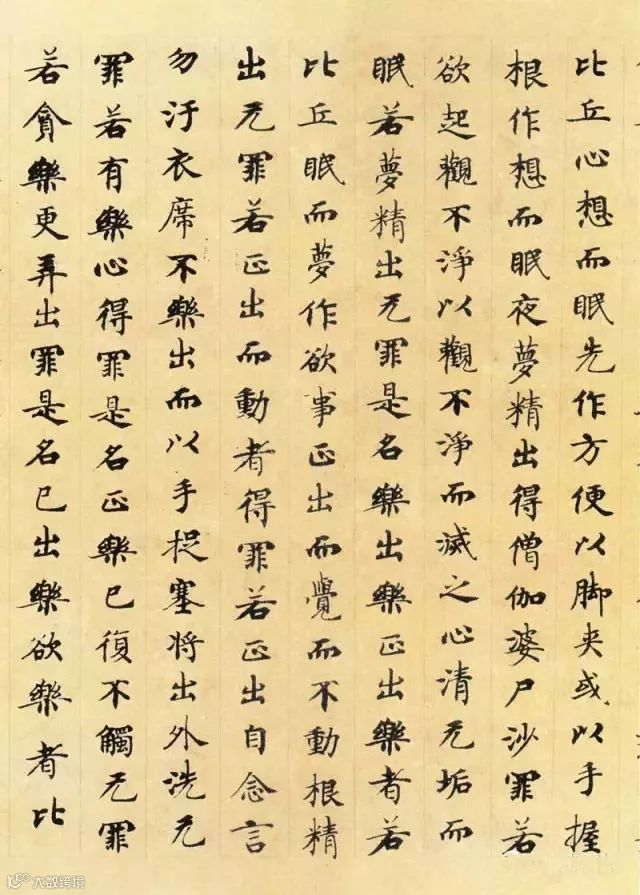 比丘心想而眠先作方便以脚夹或以手握
根作想而眠夜夢精出得僧伽婆尸沙罪若
欲起觀不淨以觀不淨而滅之心清无垢而
眠若夢精出无罪是名樂出樂正出樂者若
比丘眠而夢作欲事正出而覺而不動根精
出无罪若正出而動者得罪若正出自念言
勿汙衣席不樂出而以手捉塞将出外洗无
罪若有樂心得罪是名正樂已復不觸无罪
若貪樂更弄出罪是名已出樂欲樂者比
大数跨境